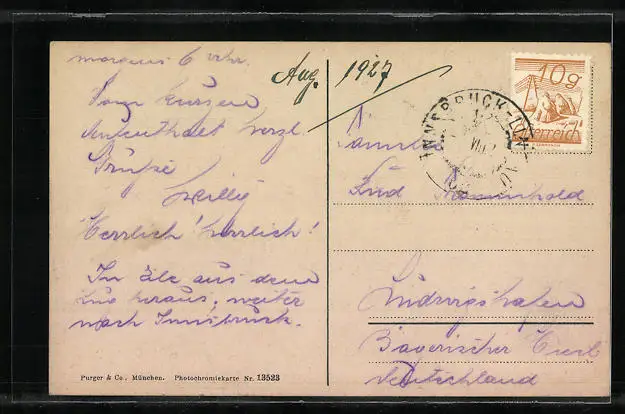 morgens 6 Uhr.
Vom kurzen
Aufenthalt herzl.
Grüße
Willy
Herrlich! herrlich!
In Eile aus dem
Zug heraus, weiter
nach Innsbruck.
Purger & Co., München. Photochromiekarte Nr. 13523
Aug. 1927
10g
Österreich
INNSBRUCK
Familie
Ludwigshafen
Bayerischer
Deutschland